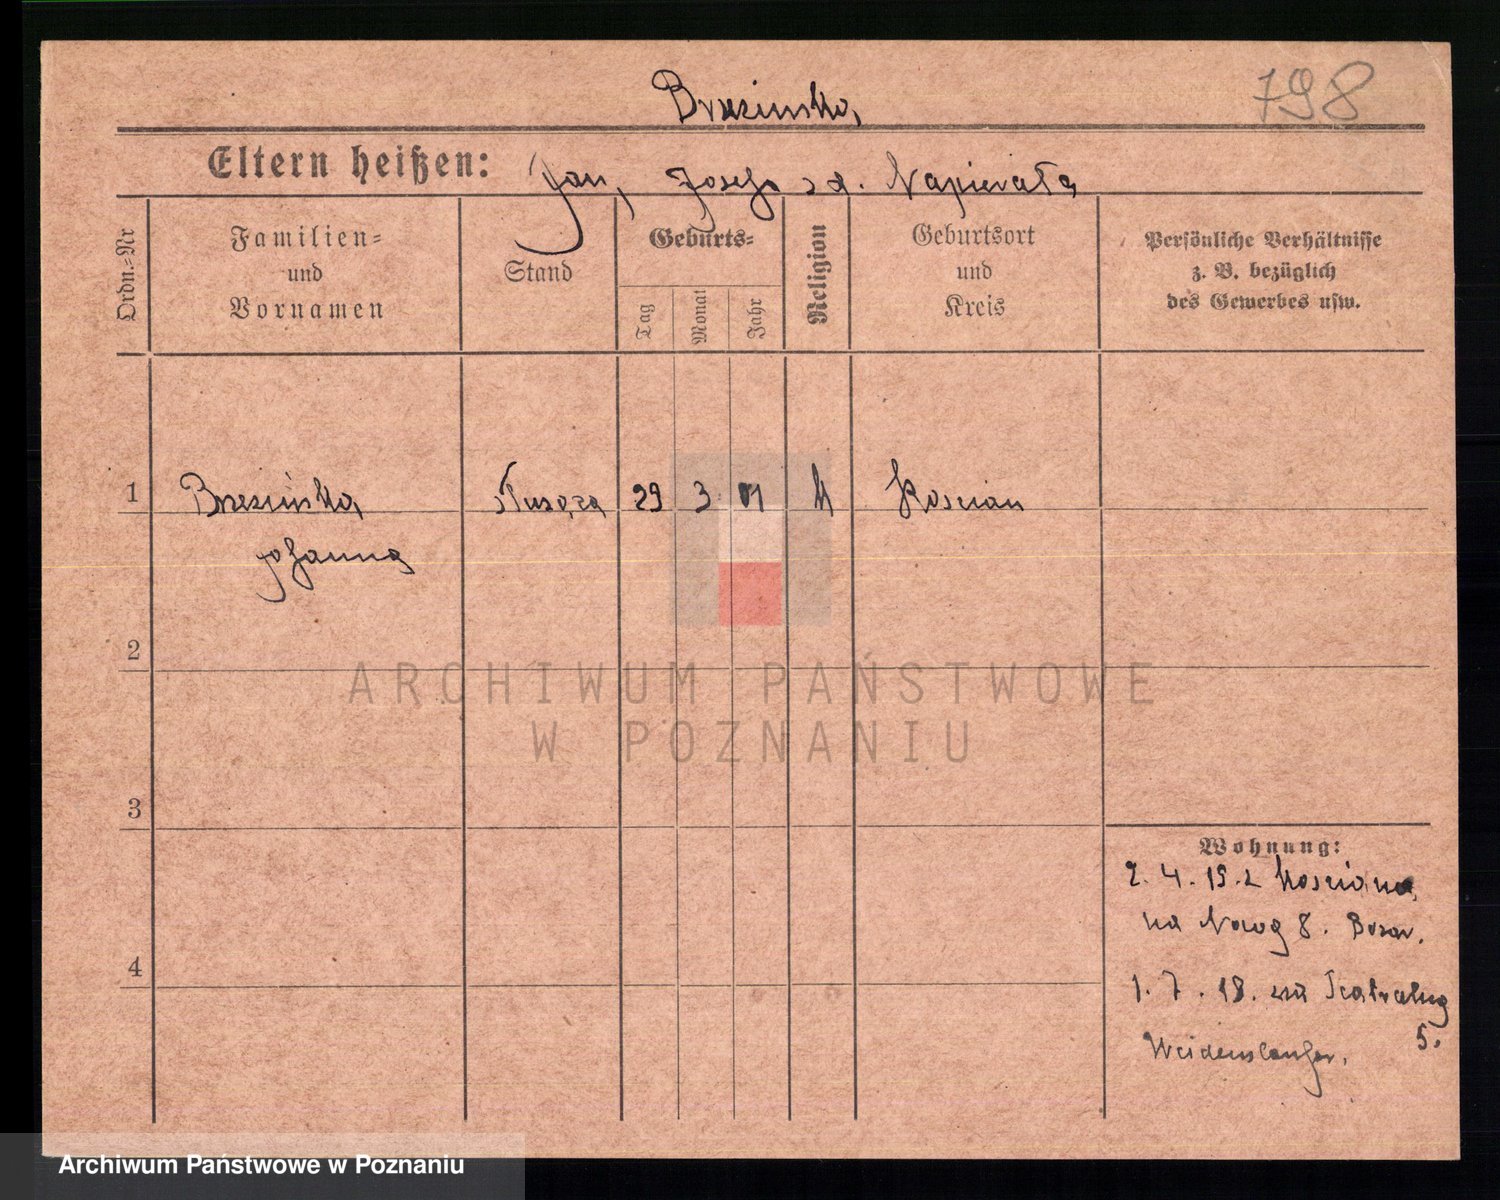 Brzezińska
798
Eltern heißen: Jan, Josefa z d. Napierała
Ordn.=Nr
Familien=
und
Vornamen
Stand
Geburts=
Tag
Monat
Jahr
Religion
Geburtsort
und
Kreis
Persönliche Verhältnisse
z. B. bezüglich
des Gewerbes usw.
1 Brzezińska służąca 29 3 01 k Kościan
Johanna
2
3
4
Wohnung:
2. 4. 19. z Kościana
na Nową 8.
1. 7. 18. na Teatralną
5.
ARCHIWUM PAŃSTWOWE
W POZNANIU
Archiwum Państwowe w Poznaniu